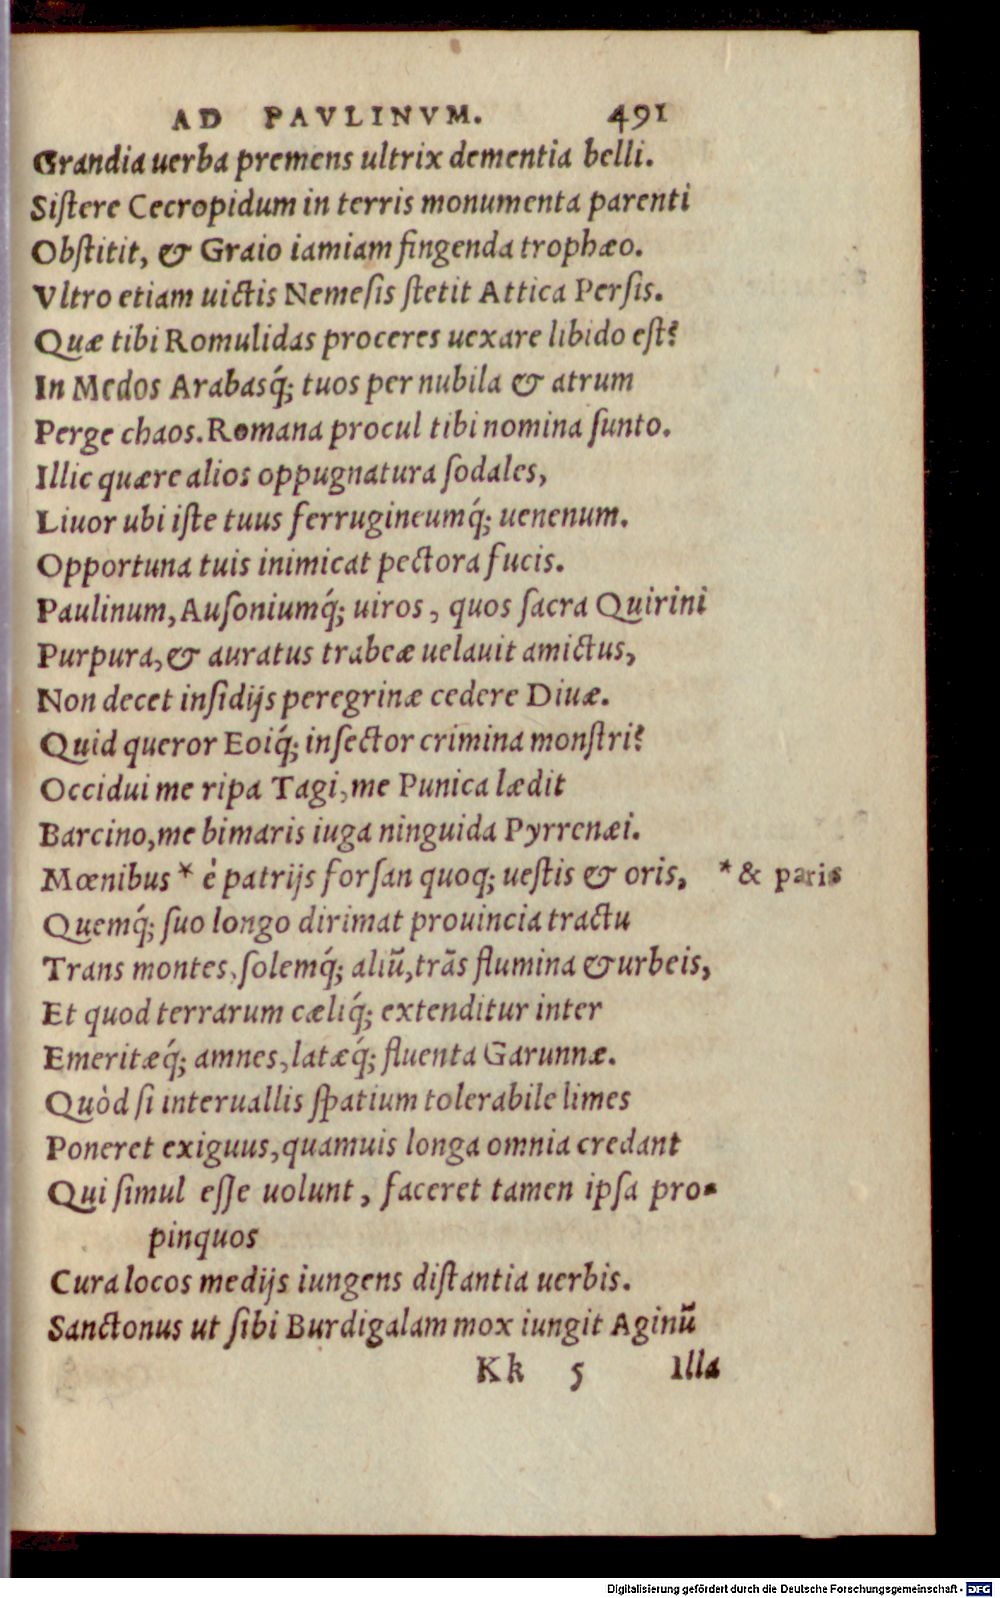 AD PAVLINVM. 491
Grandia uerba premens ultrix dementia belli.
Siſtere Cecropidum in terris monumenta parenti
Obſtitit, & Graio iamiam fingenda trophæo.
Vltro etiam uictis Nemeſis ſtetit Attica Perſis.
Quæ tibi Romulidas proceres uexare libido eſt?
In Medos Arabasq́; tuos per nubila & atrum
Perge chaos. Romana procul tibi nomina ſunto.
Illic quære alios oppugnatura ſodales,
Liuor ubi iſte tuus ferrugineumq́; uenenum.
Opportuna tuis inimicat pectora fucis.
Paulinum, Auſoniumq́; uiros, quos ſacra Quirini
Purpura, & auratus trabeæ uelauit amictus,
Non decet inſidijs peregrinæ cedere Diuæ.
Quid queror Eoiq́; inſector crimina monſtri?
Occidui me ripa Tagi, me Punica lædit
Barcino, me bimaris iuga ninguida Pyrrenæi.
Mœnibus * è patrijs forſan quoq; ueſtis & oris, * & paris
Quemq́; ſuo longo dirimat prouincia tractu
Trans montes, ſolemq́; aliũ, trãs flumina & urbeis,
Et quod terrarum cæliq́; extenditur inter
Emeritæq́; amnes, latæq́; fluenta Garunnæ.
Quòd ſi interuallis ſpatium tolerabile limes
Poneret exiguus, quamuis longa omnia credant
Qui ſimul eſſe uolunt, faceret tamen ipſa pro-
pinquos
Cura locos medijs iungens diſtantia uerbis.
Sanctonus ut ſibi Burdigalam mox iungit Aginũ
Kk 5 Illa
Digitalisierung gefördert durch die Deutsche Forschungsgemeinschaft - DFG